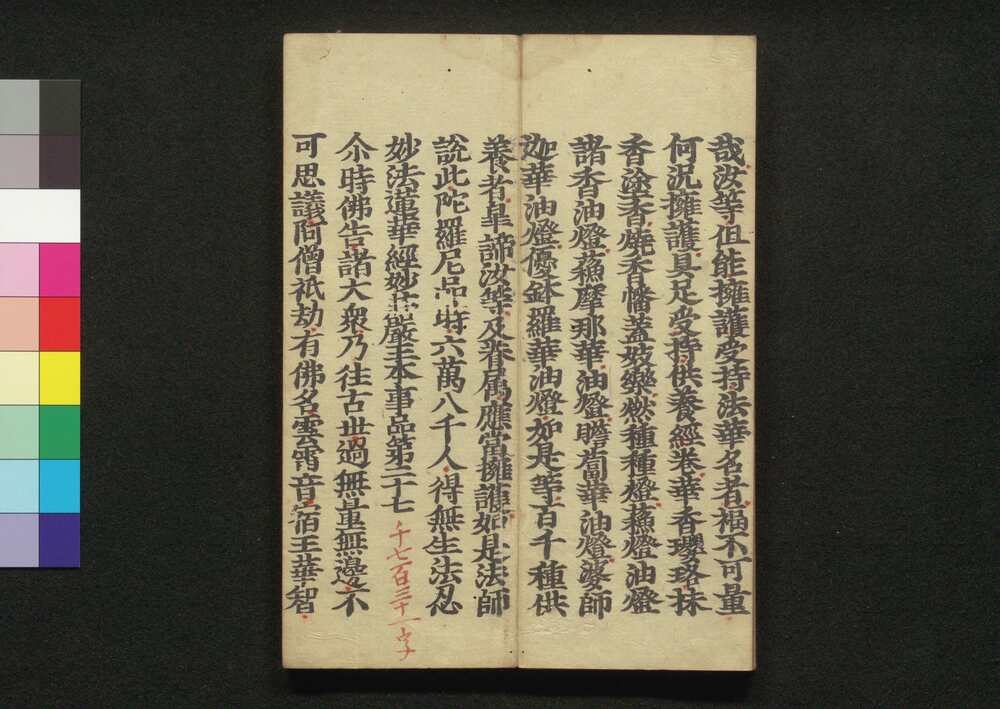 哉汝等但能擁護受持法華名者福不可量
何況擁護具足受持供養經卷華香瓔珞抹
香塗香燒香幡蓋妓樂燃種種燈蘓燈油燈
諸香油燈蘓摩那華油燈瞻蔔華油燈婆師
迦華油燈優鉢羅華油燈如是等百千種供
養者皐諦汝等及眷属應當擁護如是法師
說此陀羅尼品時六萬八千人得無生法忍
妙法蓮華經妙莊嚴王本事品第二十七
千七百三十一字
尒時佛告諸大衆乃往古世過無量無邊不
可思議阿僧祇劫有佛名雲雷音宿王華智